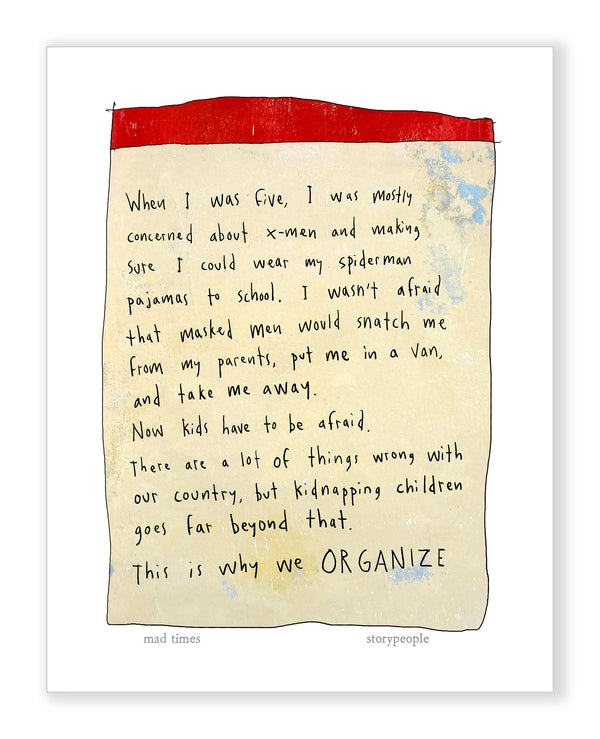 When I was five, I was mostly
concerned about x-men and making
sure I could wear my spiderman
pajamas to school. I wasn't afraid
that masked men would snatch me
from my parents, put me in a van,
and take me away.
Now kids have to be afraid.
There are a lot of things wrong with
our country, but kidnapping children
goes far beyond that.
This is why we ORGANIZE
mad times storypeople